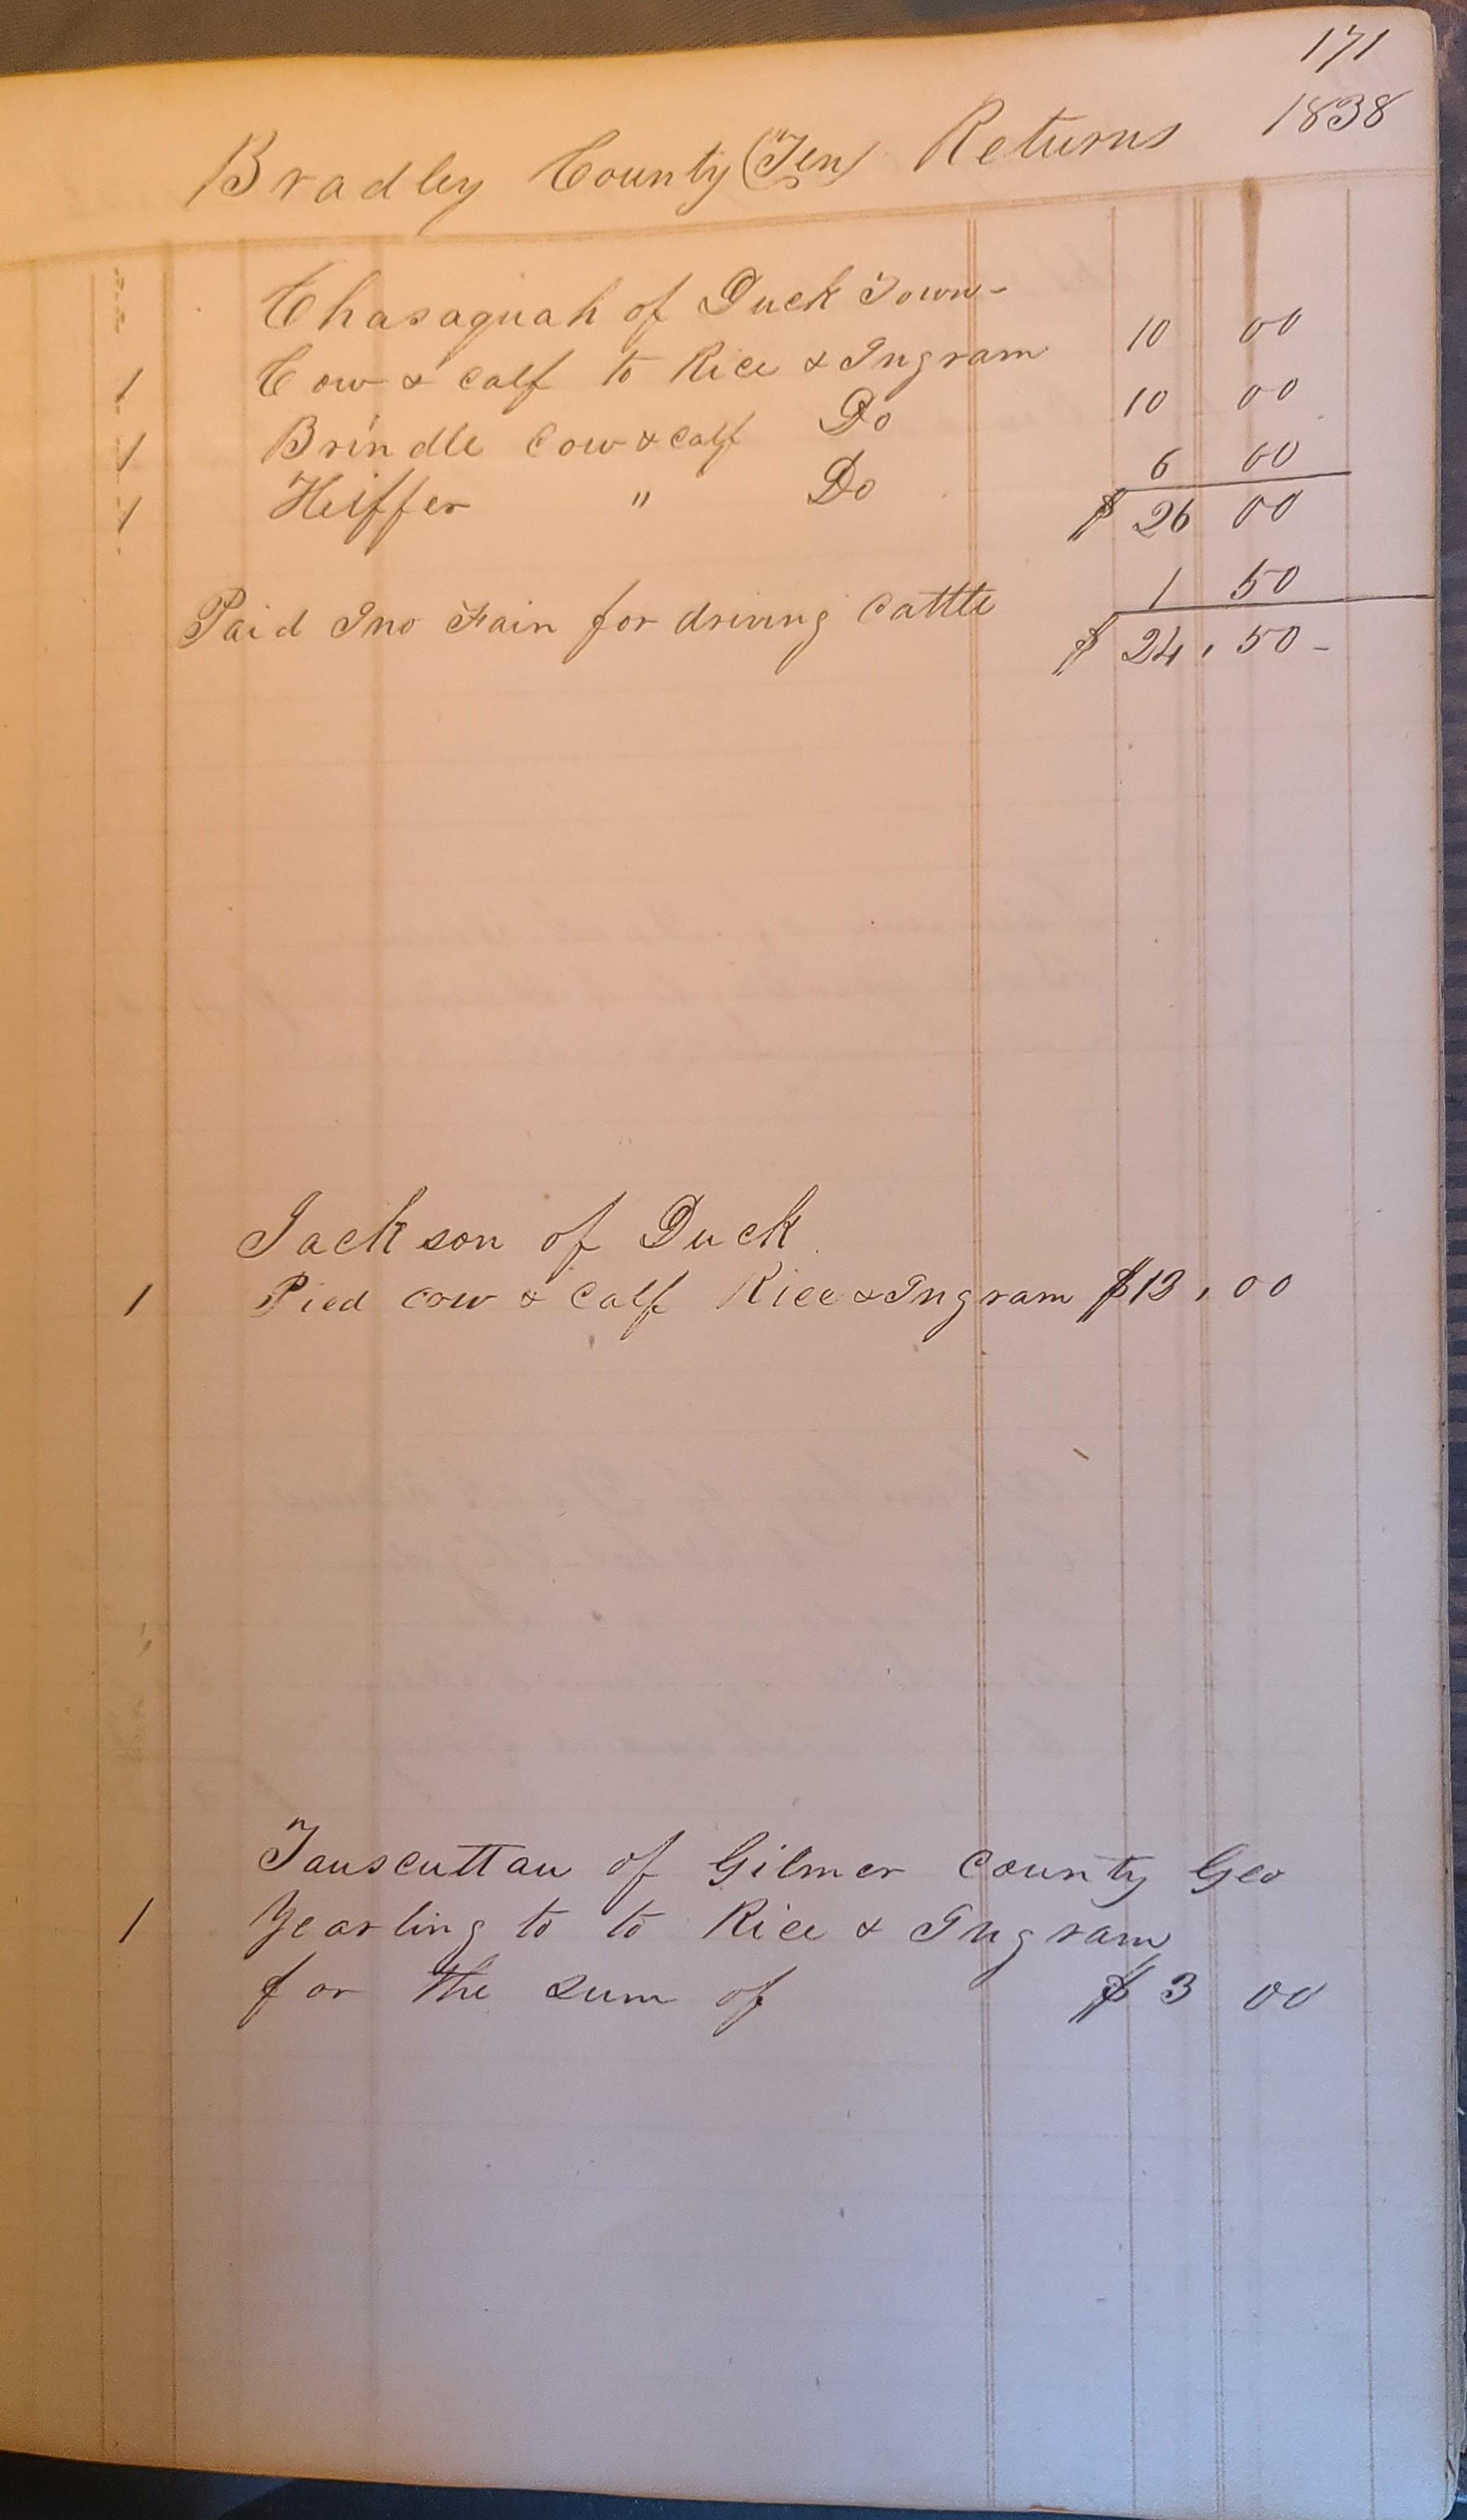 171
Bradley County (Ten) Returns 1838
Chasaquah of Duck Town-
1 Cow & calf to Rice & Ingram 10 00
1 Brindle Cow & Calf Do 10 00
1 Heiffer " Do 6 00
$ 26 00
Paid Jno Fain for driving Cattle 1 50
$ 24.50-
Jackson of Duck
1 Pied cow & Calf Rice & Ingram $13.00
Tauscuttau of Gilmer County Geo
1 Yearling to to Rice & Ingram
for the sum of $3 00